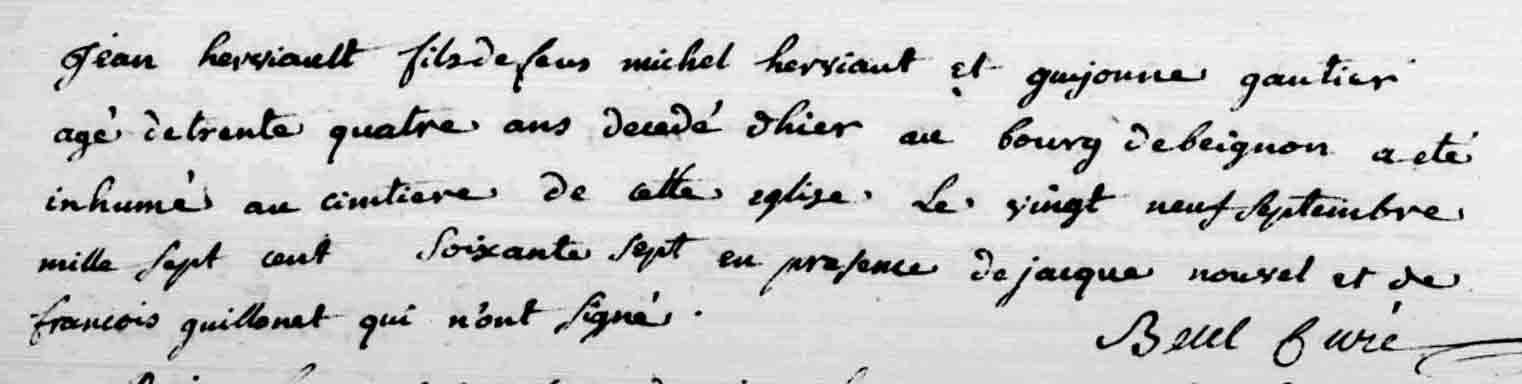 jean herviault fils de feus michel herviaut et guyonne gautier
agé de trente quatre ans decedé d'hier au bourg de beignon a eté
inhumé au cimtiere de cette eglise le vingt neuf septembre
mille sept cent soixante sept en presence de jacque nouvel et de
francois guillonet qui n'ont signé.
curé